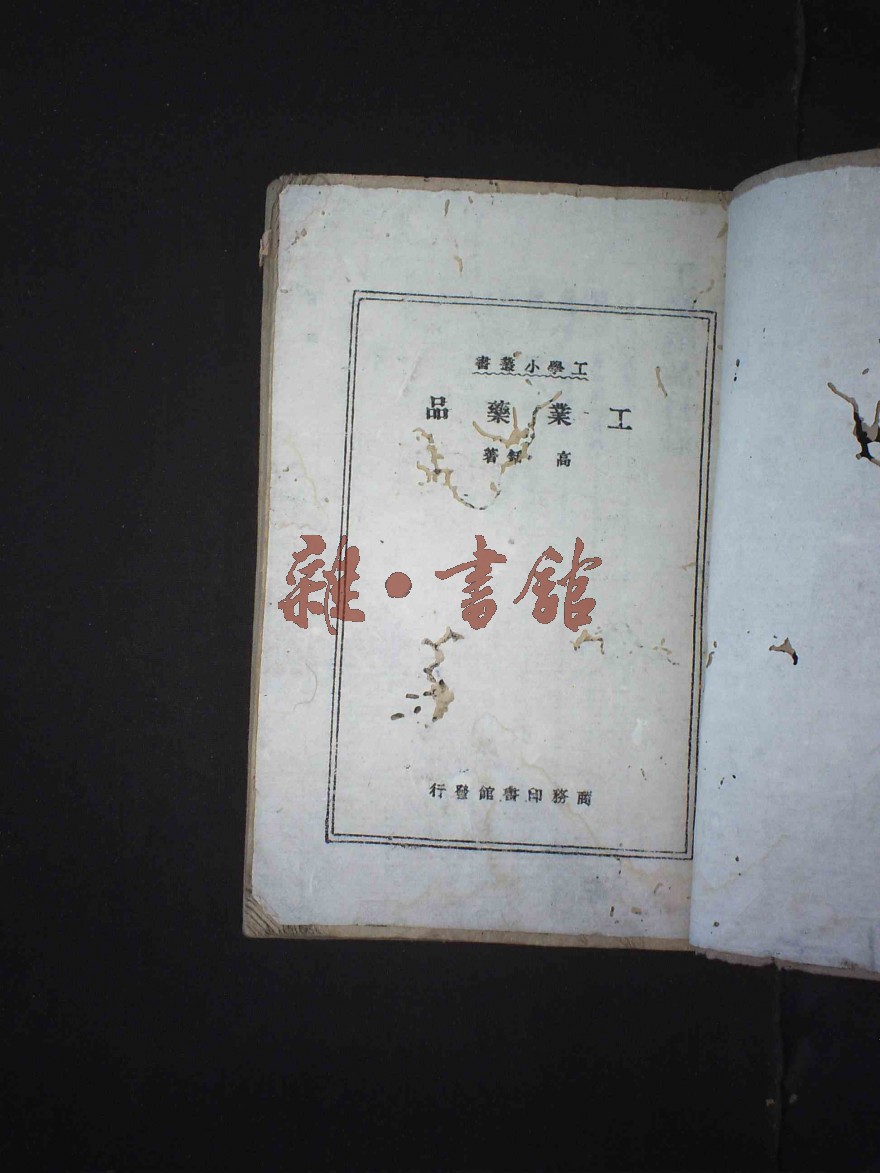 工學小叢書
工業藥品
高銛著
雜·書館
商務印書館發行